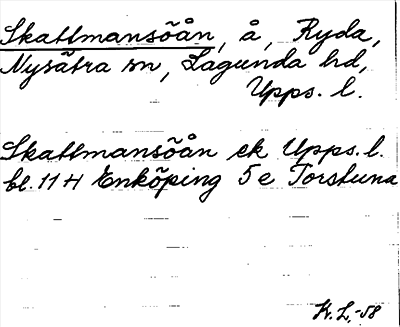 Skattmansöån, å, Ryda,
Nysätra sn, Lagunda hd,
Upps. l.
Skattmansöån ek Upps. l.
bl. 11 H Enköping 5 e Torstuna
K. L. -58